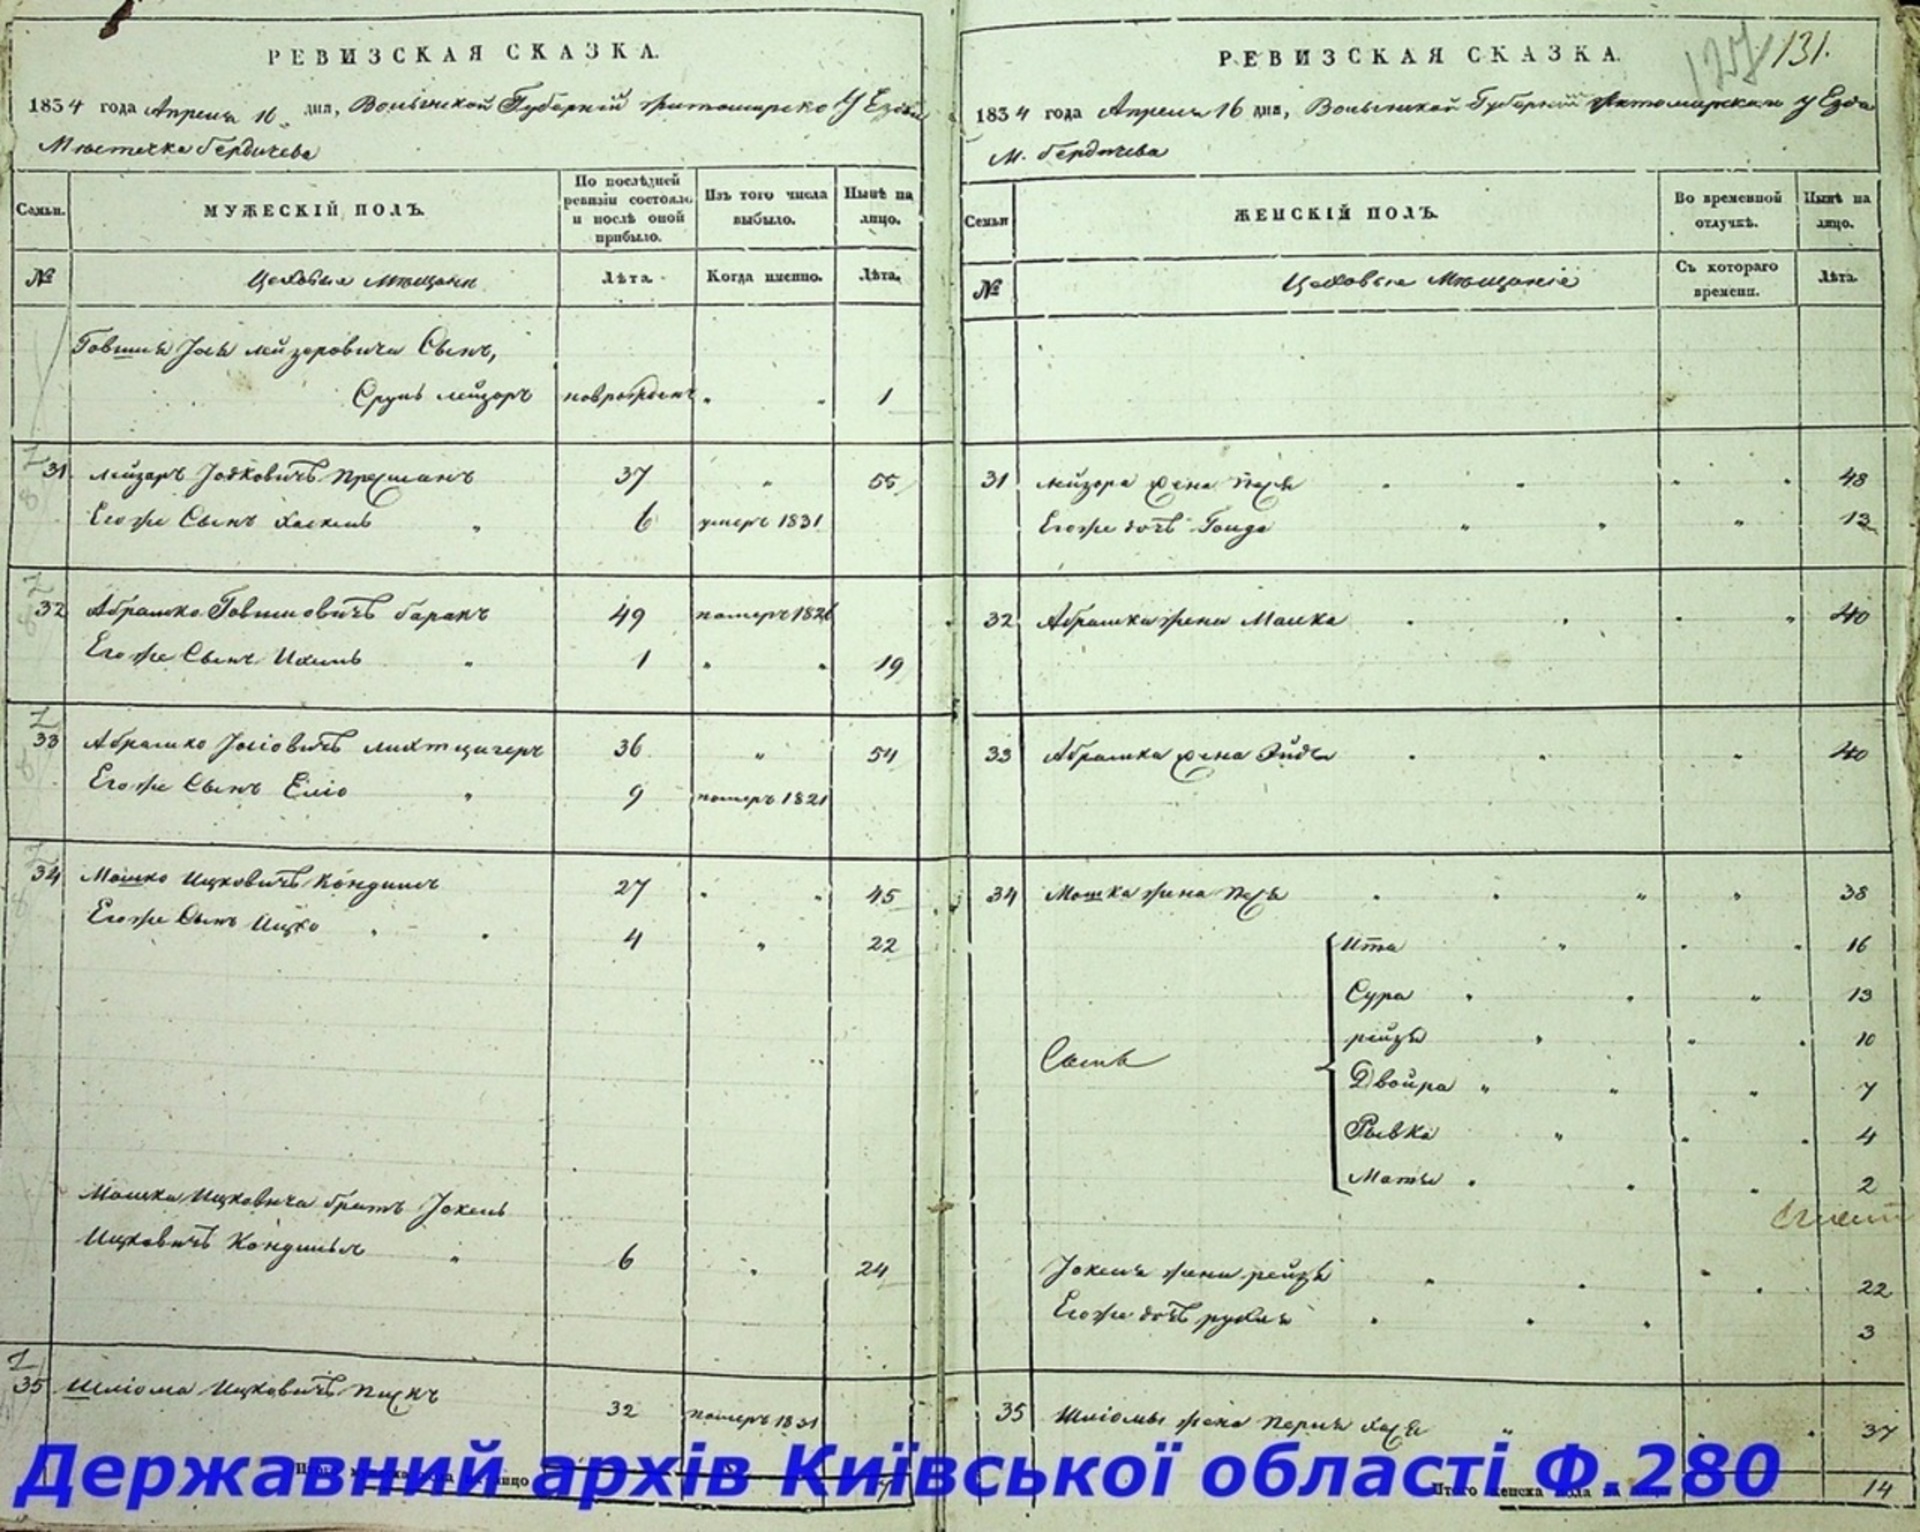 РЕВИЗСКАЯ СКАЗКА.
1834 года Апреля 16 дня, Волынской Губерніи Житомирско Уезда
Местечка Бердичева
Семьи. МУЖЕСКІЙ ПОЛЪ. По послѣдней ревизіи состояло и послѣ оной прибыло. Изъ того числа выбыло. Нынѣ на лицо.
№ Цеховые Мѣщани Лѣта. Когда именно. Лѣта.
Говшия Іося Лейзеровича Сынъ,
Сруль Лейзоръ новрожденъ 1
31 Лейзоръ Іосковичъ 37 55
Егоже Сынъ Хаскель 6 умеръ 1831
32 Абрамко Говшовичъ Баранъ 49 померъ 1826
Егоже Сынъ Ихиль 1 19
33 Абрамко Іосіовичъ Лихтцигеръ 36 54
Егоже Сынъ Еліо 9 померъ 1821
34 Мошко Ицковичъ 27 45
Егоже Сынъ Ицко 4 22
Мошка Ицковича братъ Іохель
Ицковичъ 6 24
35 Шліома Ицковичъ 32 померъ 1831
РЕВИЗСКАЯ СКАЗКА.
131.
1834 года Апреля 16 дня, Волынской Губерніи Житомирскаго Уезда
М. Бердичева
Семьи ЖЕНСКІЙ ПОЛЪ. Во временной отлучкѣ. Нынѣ на лицо.
№ Цеховые Мѣщаніе Съ котораго времени. Лѣта.
31 Лейзора жена Песя 48
Егоже дочь Голда 13
32 Абрамка жена Малка 40
33 Абрамка жена 40
34 Мошка жена Песя 38
Ита 16
Сура 13
Рейзя 10
Двойра 7
Рывка 4
Маты 2
Іохеля жена Рейзя 22
Егоже дочь Рухля 3
35 Шліомы жена Перля Хася 37
Итого женска пола 14
Державний архів Київської області Ф.280